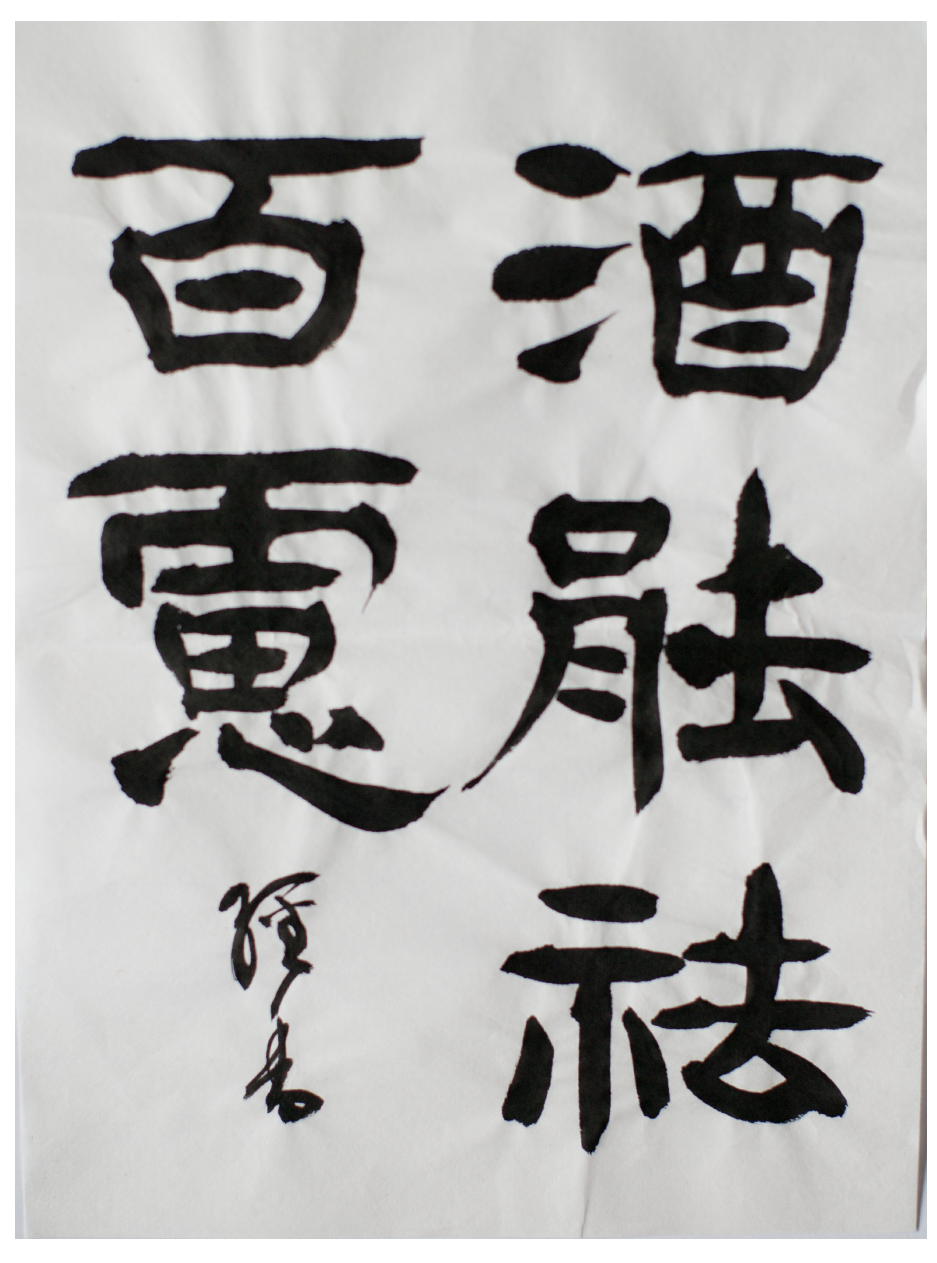 酒能祛
百慮
書